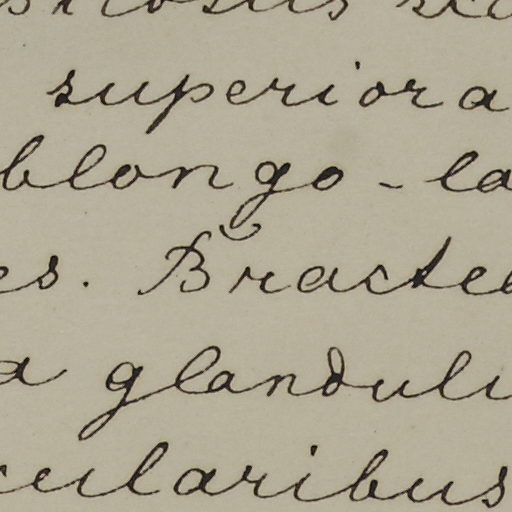 superiora
blongo-la
es. Bractee
a glanduli
cularibus